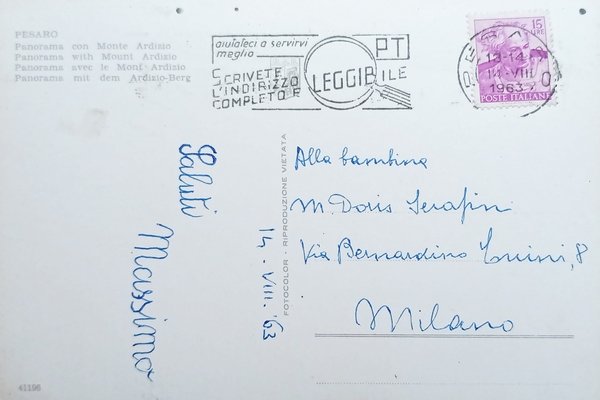 PESARO
Panorama con Monte Ardizio
Panorama with Mount Ardizio
Panorama avec le Mont Ardizio
Panorama mit dem Ardizio-Berg
aiutateci a servirvi
meglio
SCRIVETE
L'INDIRIZZO
COMPLETO E LEGGIBILE
PT
15
LIRE
13-14
14·VIII
1963
POSTE ITALIANE
Saluti
Massimo
14-VIII.'63
FOTOCOLOR - RIPRODUZIONE VIETATA
Alla bambina
M. Doris Serafini
Via Bernardino Luini, 8
Milano
41196